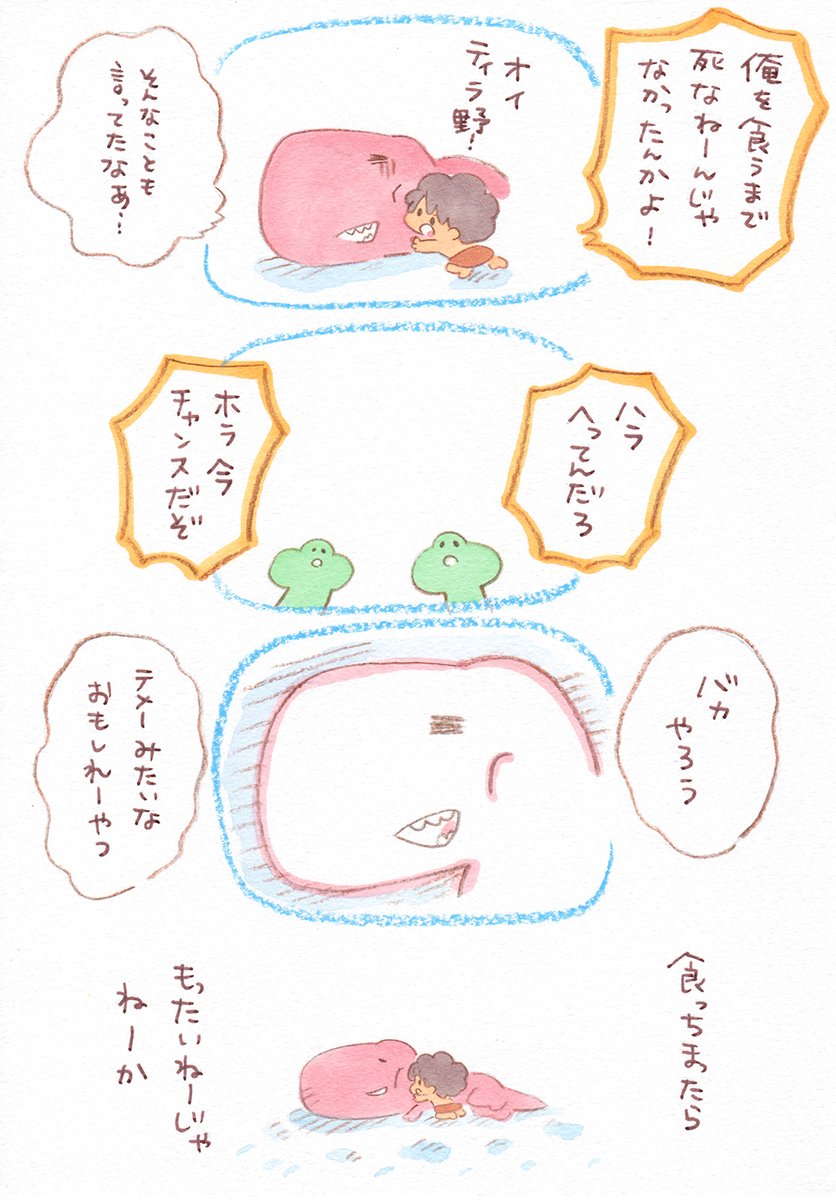 俺を食うまで
死なねーんじゃ
なかったんかよ！
オイ
ティラ野！
そんなことも
言ってたなぁ…
ハラ
へってんだろ
ホラ 今
チャンスだぞ
バカ
やろう
テメーみたいな
おもしれーやつ
食っちまったら
もったいねーじゃ
ねーか